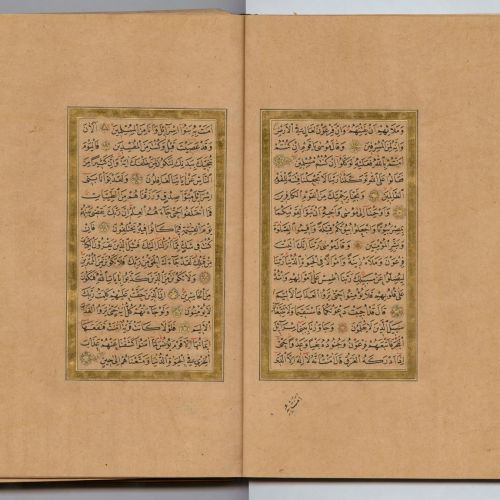 وَمَلَائِهِمْ اَنْ يَفْتِنَهُمْ وَاِنَّ فِرْعَوْنَ لَعَالٍ فِي الْاَرْضِ
وَاِنَّهُ لَمِنَ الْمُسْرِفِينَ وَقَالَ مُوسٰى يَا قَوْمِ اِنْ كُنْتُمْ
اٰمَنْتُمْ بِاللّٰهِ فَعَلَيْهِ تَوَكَّلُوا اِنْ كُنْتُمْ مُسْلِمِينَ فَقَالُوا
عَلَى اللّٰهِ تَوَكَّلْنَا رَبَّنَا لَا تَجْعَلْنَا فِتْنَةً لِلْقَوْمِ
الظَّالِمِينَ وَنَجِّنَا بِرَحْمَتِكَ مِنَ الْقَوْمِ الْكَافِرِينَ
وَاَوْحَيْنَا اِلٰى مُوسٰى وَاَخِيهِ اَنْ تَبَوَّاٰ لِقَوْمِكُمَا
بِمِصْرَ بُيُوتًا وَاجْعَلُوا بُيُوتَكُمْ قِبْلَةً وَاَقِيمُوا الصَّلٰوةَ
وَبَشِّرِ الْمُؤْمِنِينَ وَقَالَ مُوسٰى رَبَّنَا اِنَّكَ اٰتَيْتَ
فِرْعَوْنَ وَمَلَاَهُ زِينَةً وَاَمْوَالًا فِي الْحَيٰوةِ الدُّنْيَا رَبَّنَا
لِيُضِلُّوا عَنْ سَبِيلِكَ رَبَّنَا اطْمِسْ عَلٰى اَمْوَالِهِمْ وَاشْدُدْ
عَلٰى قُلُوبِهِمْ فَلَا يُؤْمِنُوا حَتّٰى يَرَوُا الْعَذَابَ الْاَلِيمَ
قَالَ قَدْ اُجِيبَتْ دَعْوَتُكُمَا فَاسْتَقِيمَا وَلَا تَتَّبِعَانِّ
سَبِيلَ الَّذِينَ لَا يَعْلَمُونَ وَجَاوَزْنَا بِبَنِي اِسْرَائِيلَ
الْبَحْرَ فَاَتْبَعَهُمْ فِرْعَوْنُ وَجُنُودُهُ بَغْيًا وَعَدْوًا حَتّٰى
اِذَا اَدْرَكَهُ الْغَرَقُ قَالَ اٰمَنْتُ اَنَّهُ لَا اِلٰهَ اِلَّا الَّذِي
اٰمَنَتْ بِهِ بَنُوا اِسْرَائِيلَ وَاَنَا مِنَ الْمُسْلِمِينَ آٰلْاٰنَ
وَقَدْ عَصَيْتَ قَبْلُ وَكُنْتَ مِنَ الْمُفْسِدِينَ فَالْيَوْمَ
نُنَجِّيكَ بِبَدَنِكَ لِتَكُونَ لِمَنْ خَلْفَكَ اٰيَةً وَاِنَّ كَثِيرًا مِنَ
النَّاسِ عَنْ اٰيَاتِنَا لَغَافِلُونَ وَلَقَدْ بَوَّاْنَا بَنِي
اِسْرَائِيلَ مُبَوَّاَ صِدْقٍ وَرَزَقْنَاهُمْ مِنَ الطَّيِّبَاتِ
فَمَا اخْتَلَفُوا حَتّٰى جَاءَهُمُ الْعِلْمُ اِنَّ رَبَّكَ يَقْضِي بَيْنَهُمْ
يَوْمَ الْقِيٰمَةِ فِيمَا كَانُوا فِيهِ يَخْتَلِفُونَ فَاِنْ
كُنْتَ فِي شَكٍّ مِمَّا اَنْزَلْنَا اِلَيْكَ فَسْئَلِ الَّذِينَ يَقْرَؤُنَ الْكِتَابَ
مِنْ قَبْلِكَ لَقَدْ جَاءَكَ الْحَقُّ مِنْ رَبِّكَ فَلَا تَكُونَنَّ مِنَ الْمُمْتَرِينَ
وَلَا تَكُونَنَّ مِنَ الَّذِينَ كَذَّبُوا بِاٰيَاتِ اللّٰهِ فَتَكُونَ
مِنَ الْخَاسِرِينَ اِنَّ الَّذِينَ حَقَّتْ عَلَيْهِمْ كَلِمَتُ رَبِّكَ
لَا يُؤْمِنُونَ وَلَوْ جَاءَتْهُمْ كُلُّ اٰيَةٍ حَتّٰى يَرَوُا الْعَذَابَ
الْاَلِيمَ فَلَوْلَا كَانَتْ قَرْيَةٌ اٰمَنَتْ فَنَفَعَهَا
اِيمَانُهَا اِلَّا قَوْمَ يُونُسَ لَمَّا اٰمَنُوا كَشَفْنَا عَنْهُمْ عَذَابَ
الْخِزْيِ فِي الْحَيٰوةِ الدُّنْيَا وَمَتَّعْنَاهُمْ اِلٰى حِينٍ